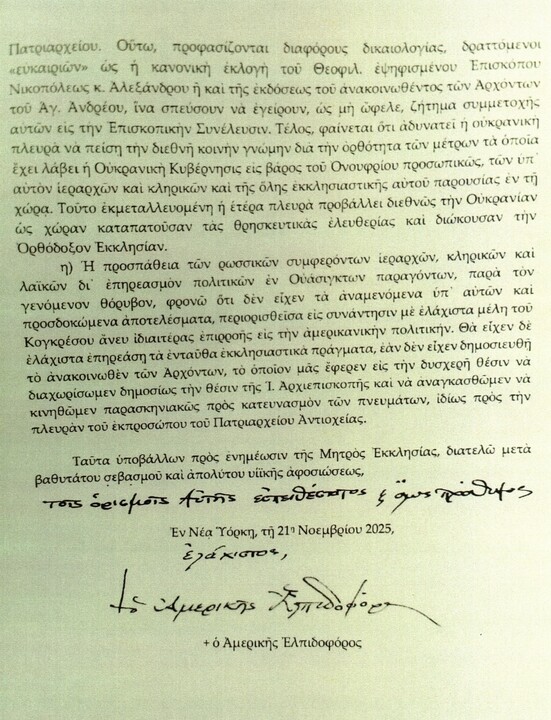 Πατριαρχείου. Οὕτω, προφασίζονται διαφόρους δικαιολογίας, δραττόμενοι
«εὐκαιριῶν» ὡς ἡ κανονική ἐκλογή τοῦ Θεοφιλ. ἐψηφισμένου Ἐπισκόπου
Νικοπόλεως κ. Ἀλεξάνδρου ἤ καί τῆς ἐκδόσεως τοῦ ἀνακοινωθέντος τῶν Ἀρχόντων
τοῦ Ἁγ. Ἀνδρέου, ἵνα σπεύσουν νά ἐγείρουν, ὡς μή ὤφελε, ζήτημα συμμετοχῆς
αὐτῶν εἰς τήν Ἐπισκοπικήν Συνέλευσιν. Τέλος, φαίνεται ὅτι ἀδυνατεῖ ἡ οὐκρανική
πλευρά νά πείση τήν διεθνῆ κοινήν γνώμην διά τήν ὀρθότητα τῶν μέτρων τά ὁποῖα
ἔχει λάβει ἡ Οὐκρανική Κυβέρνησις εἰς βάρος τοῦ Ὀνουφρίου προσωπικῶς, τῶν ὑπ᾽
αὐτόν ἱεραρχῶν καί κληρικῶν καί τῆς ὅλης ἐκκλησιαστικῆς αὐτοῦ παρουσίας ἐν τῇ
χώρᾳ. Τοῦτο ἐκμεταλλευομένη ἡ ἑτέρα πλευρά προβάλλει διεθνῶς τήν Οὐκρανίαν
ὡς χώραν καταπατοῦσαν τάς θρησκευτικάς ἐλευθερίας καί διώκουσαν τήν
Ὀρθόδοξον Ἐκκλησίαν.
η) Ἡ προσπάθεια τῶν ρωσσικῶν συμφερόντων ἱεραρχῶν, κληρικῶν καί
λαϊκῶν δι᾽ ἐπηρεασμόν πολιτικῶν ἐν Οὐάσιγκτων παραγόντων, παρά τόν
γενόμενον θόρυβον, φρονῶ ὅτι δέν εἶχεν τά ἀναμενόμενα ὑπ᾽ αὐτῶν καί
προσδοκώμενα ἀποτελέσματα, περιορισθεῖσα εἰς συνάντησιν μέ ἐλάχιστα μέλη τοῦ
Κογκρέσου ἄνευ ἰδιαιτέρας ἐπιρροῆς εἰς τήν ἀμερικανικήν πολιτικήν. Θά εἶχεν δέ
ἐλάχιστα ἐπηρεάση τά ἐνταῦθα ἐκκλησιαστικά πράγματα, ἐάν δέν εἶχεν δημοσιευθῆ
τό ἀνακοινωθέν τῶν Ἀρχόντων, τό ὁποῖον μᾶς ἔφερεν εἰς τήν δυσχερῆ θέσιν νά
διαχωρίσωμεν δημοσίως τήν θέσιν τῆς Ἱ. Ἀρχιεπισκοπῆς καί νά ἀναγκασθῶμεν νά
κινηθῶμεν παρασκηνιακῶς πρός κατευνασμόν τῶν πνευμάτων, ἰδίως πρός τήν
πλευράν τοῦ ἐκπροσώπου τοῦ Πατριαρχείου Ἀντιοχείας.
Ταῦτα ὑποβάλλων πρός ἐνημέωσιν τῆς Μητρός Ἐκκλησίας, διατελῶ μετά
βαθυτάτου σεβασμοῦ καί ἀπολύτου υἱικῆς ἀφοσιώσεως,
τοῖς ὁρισμοῖς Αὐτῆς εὐπειθέστατος καὶ ὅλως πρόθυμος
Ἐν Νέᾳ Ὑόρκῃ, τῇ 21ῃ Νοεμβρίου 2025,
ἐλάχιστος,
+ ὁ Ἀμερικῆς Ἐλπιδοφόρος
+ ὁ Ἀμερικῆς Ἐλπιδοφόρος